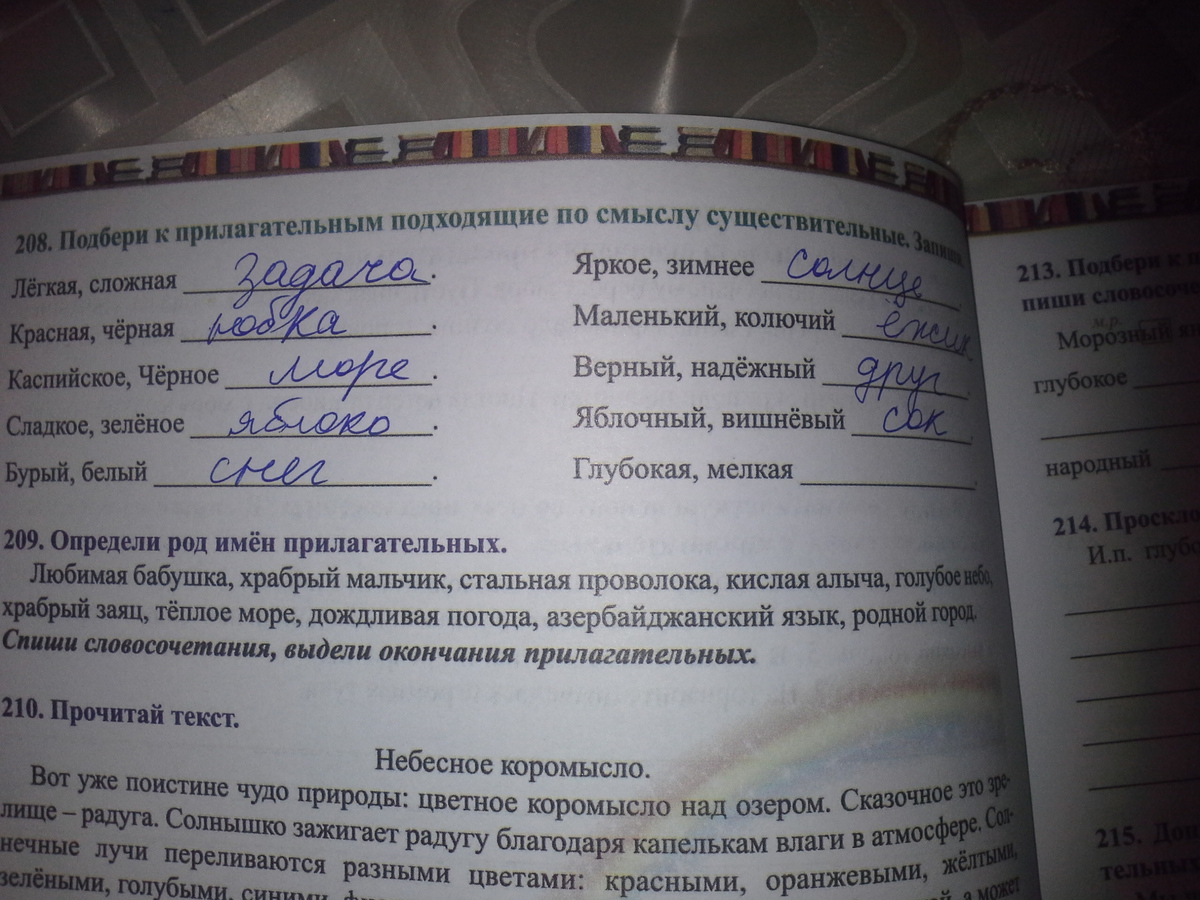 208. Подбери к прилагательным подходящие по смыслу существительные. Запиши.
Лёгкая, сложная задача.
Красная, чёрная
Каспийское, Чёрное море.
Сладкое, зелёное яблоко.
Бурый, белый снег.
Яркое, зимнее солнце.
Маленький, колючий ёжик
Верный, надёжный друг.
Яблочный, вишнёвый сок.
Глубокая, мелкая
209. Определи род имён прилагательных.
Любимая бабушка, храбрый мальчик, стальная проволока, кислая алыча, голубое небо,
храбрый заяц, тёплое море, дождливая погода, азербайджанский язык, родной город.
Спиши словосочетания, выдели окончания прилагательных.
210. Прочитай текст.
Небесное коромысло.
Вот уже поистине чудо природы: цветное коромысло над озером. Сказочное это зре-
лище – радуга. Солнышко зажигает радугу благодаря капелькам влаги в атмосфере. Сол-
нечные лучи переливаются разными цветами: красными, оранжевыми, жёлтыми,
зелёными, голубыми, синими, а может
213. Подбери к
пиши
м.р.
Морозный
глубокое
народный
214.
И.п.
215.